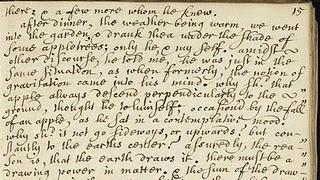 there: & a few more whom he knew. 15
after dinner, the weather being warm, we went
into the garden, & drank thea under the shade of
some appletrees; only he, & my self. amidst
other discourse, he told me, he was just in the
same situation, as when formerly, the notion of
gravitation came into his mind. why sh.d that
apple always descend perpendicularly to the
ground, thought he to himself; occasion'd by the fall
of an apple, as he sat in a contemplative mood.
why sh.d it not go sideways, or upwards? but con-
stantly to the earths center? assuredly, the rea-
son is, that the earth draws it. there must be a
drawing power in matter. & the sum of the draw-